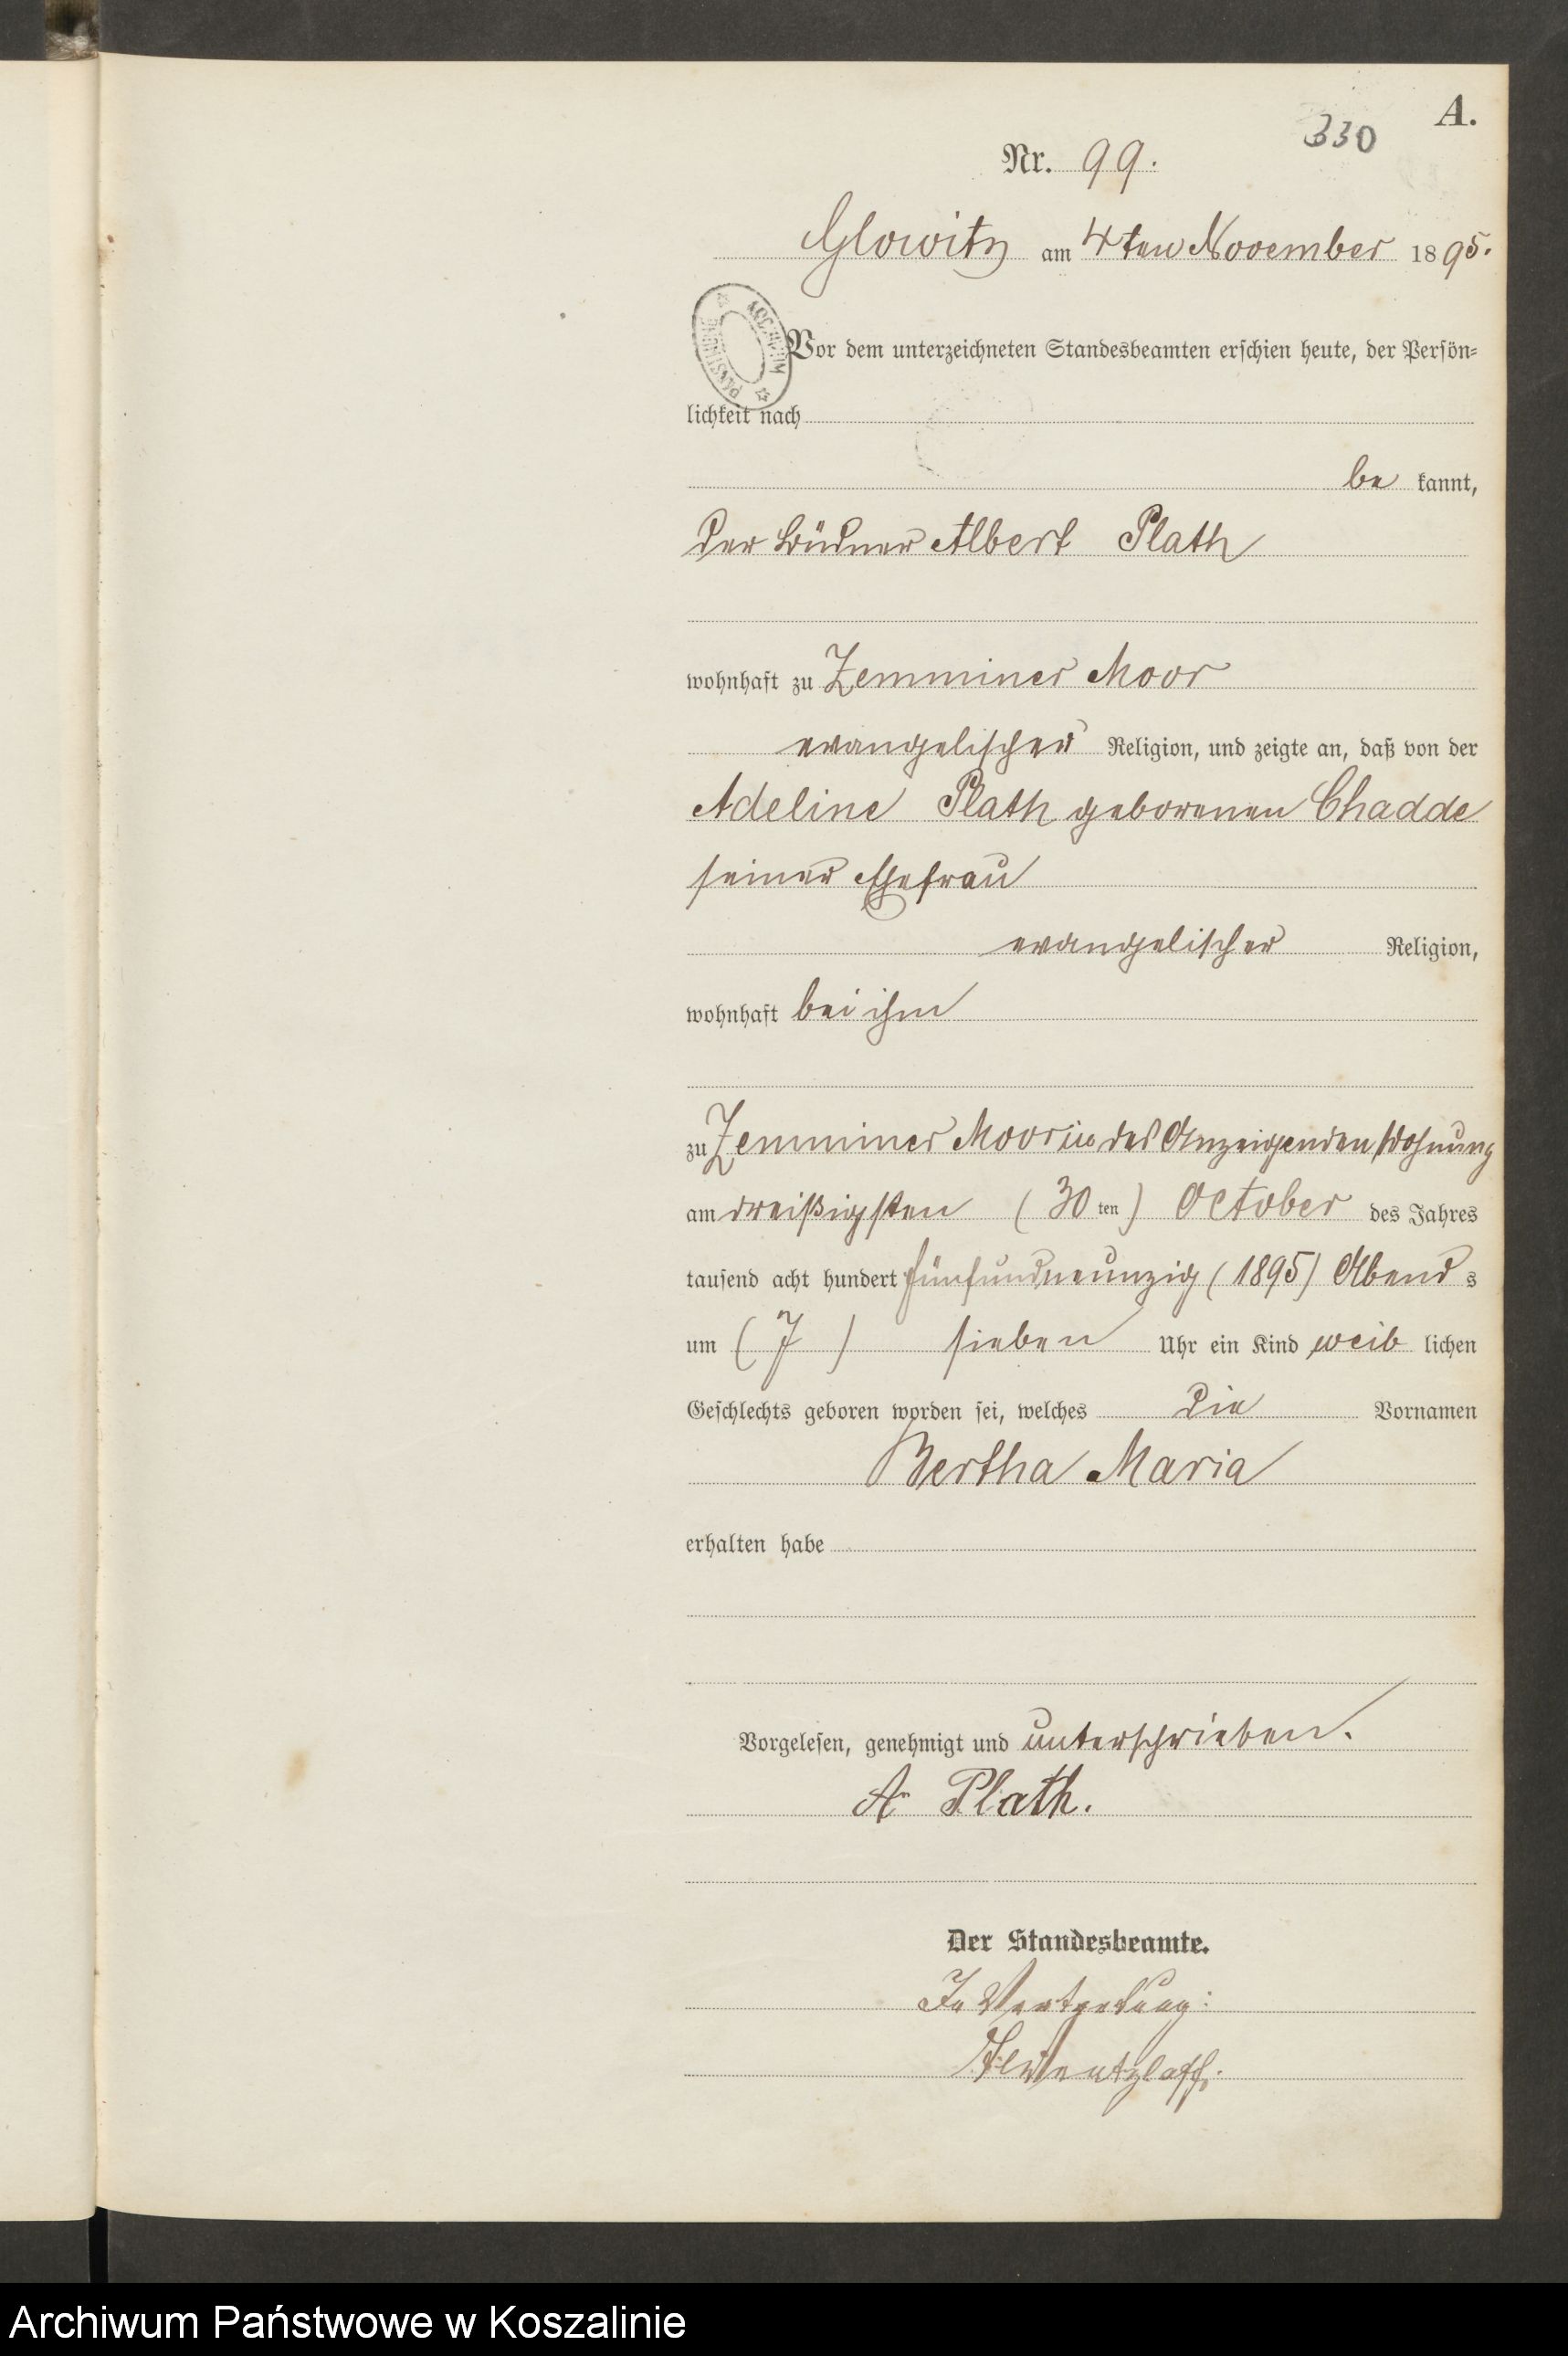 A.
330
Nr. 99.
Glowitz am 4ten November 1895.
Vor dem unterzeichneten Standesbeamten erschien heute, der Persön=
lichkeit nach
be kannt,
der Büdner Albert Plath
wohnhaft zu Zemminer Moor
evangelischer Religion, und zeigte an, daß von der
Adeline Plath geborenen Chadde
seiner Ehefrau
evangelischer Religion,
wohnhaft bei ihm
zu Zemminer Moor in des Anzeigenden Wohnung
am dreißigsten (30ten) October des Jahres
tausend acht hundert fünfundneunzig (1895) Abends
um (7) sieben Uhr ein Kind weiblichen
Geschlechts geboren worden sei, welches die Vornamen
Bertha Maria
erhalten habe
Vorgelesen, genehmigt und unterschrieben.
A Plath.
Der Standesbeamte.
In Vertretung:
Archiwum Państwowe w Koszalinie